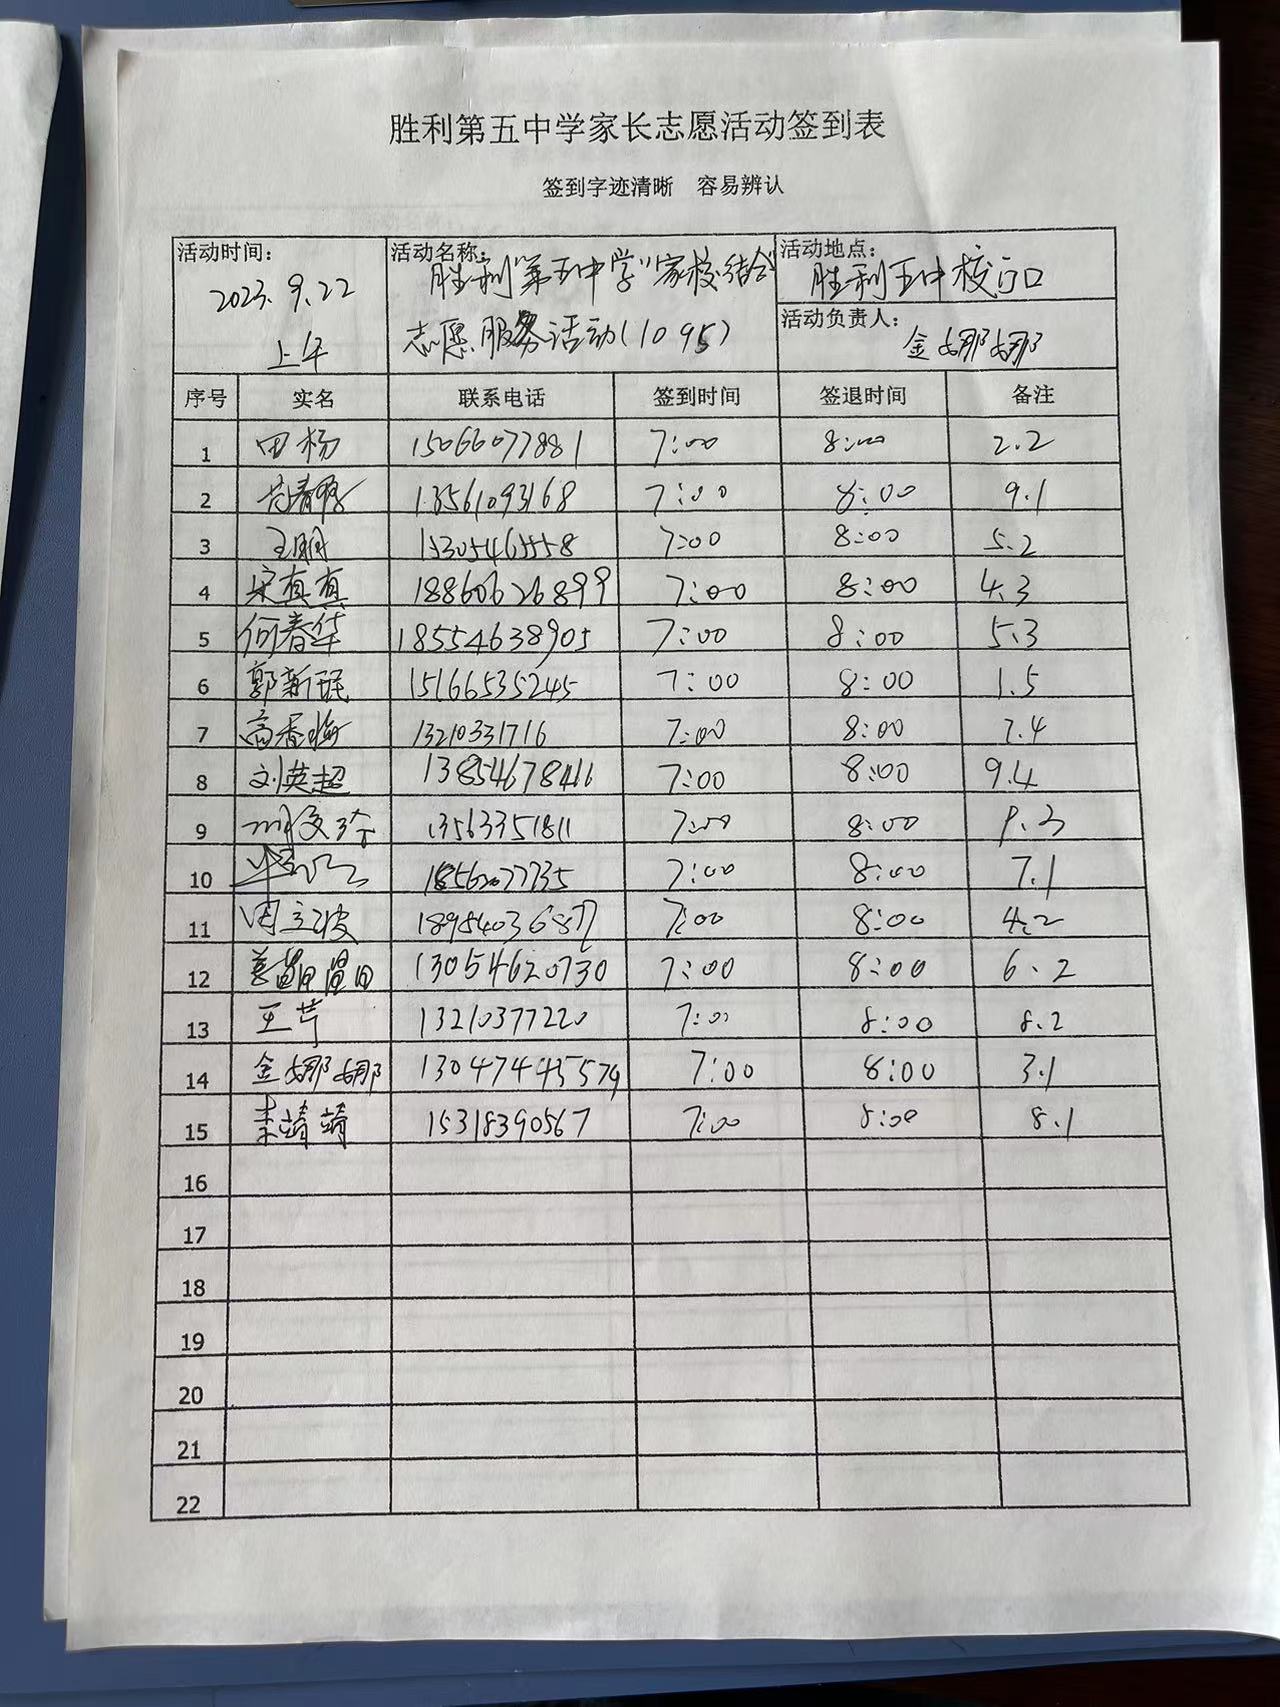 胜利第五中学家长志愿活动签到表
签到字迹清晰 容易辨认
活动时间: 2023.9.22 上午
活动名称: 胜利"第五中学"家校结合 志愿服务活动(1095)
活动地点: 胜利五中校门口
活动负责人: 金娜娜
序号 实名 联系电话 签到时间 签退时间 备注
1 田杨 15066077881 7:00 8:00 2.2
2 13561093168 7:00 8:00 9.1
3 王鹏 15305465558 7:00 8:00 5.2
4 宋真真 18860626899 7:00 8:00 4.3
5 何春华 18554638905 7:00 8:00 5.3
6 郭新珉 15166535245 7:00 8:00 1.5
7 高香梅 13210331716 7:00 8:00 7.4
8 刘英超 13854678416 7:00 8:00 9.4
9 13563351811 7:00 8:00 9.3
10 18562077735 7:00 8:00 7.1
11 周立波 18954036877 7:00 8:00 4.2
12 13054620730 7:00 8:00 6.2
13 王芹 13210377220 7:00 8:00 8.2
14 金娜娜 13047445579 7:00 8:00 3.1
15 李靖靖 15318390567 7:00 8:00 8.1
16
17
18
19
20
21
22